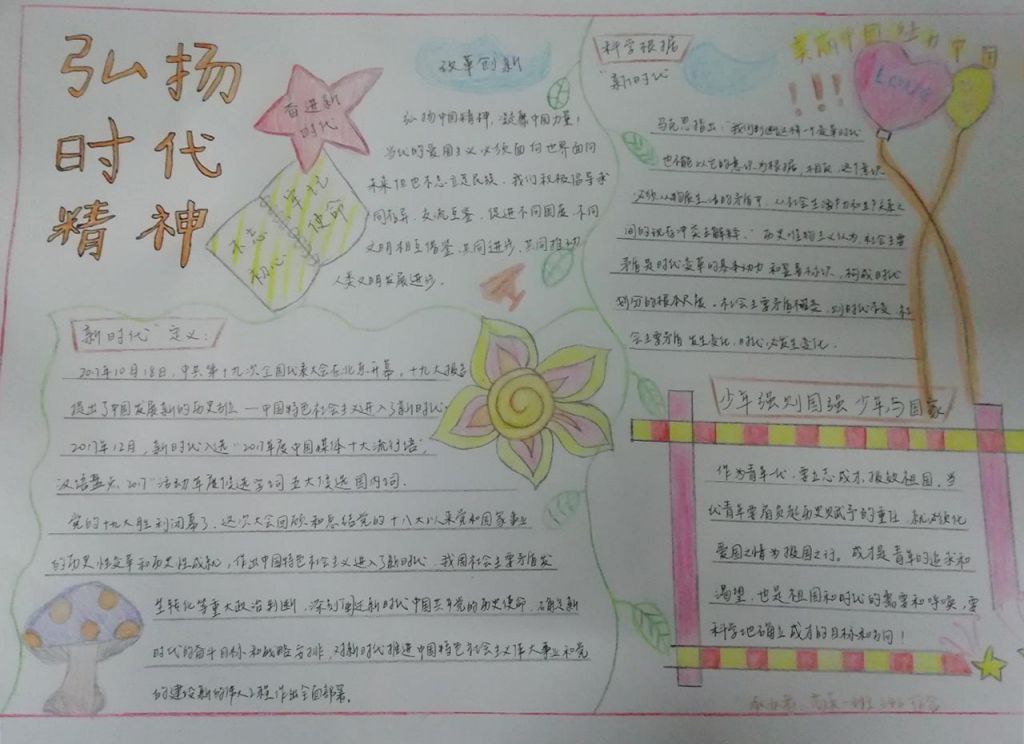 弘扬
时代
精神
奋进新
时代
不忘
初心
牢记
使命
改革创新
弘扬中国精神，凝聚中国力量！
当代的爱国主义必须面向世界面向
未来但也不忘立足民族。我们积极倡导求
同存异、交流互鉴，促进不同国度、不同
文明相互借鉴、共同进步，共同推动
人类文明发展进步。
科学根据
"新时代"
美丽中国
!!!
Love
马克思指出："我们判断这样一个变革时代
也不能以它的意识为根据，相反，这个意识
必须从物质生活的矛盾中，从社会生产力和生产关系之
间的现存冲突去解释。"历史唯物主义认为，社会主要
矛盾是时代变革的基本动力和显著标识，构成时代
划分的根本尺度。社会主要矛盾不变，则时代不变 社
会主要矛盾发生变化，时代必发生变化。
"新时代"定义：
2017年10月18日，中共第十九次全国代表大会在北京开幕，十九大报告
提出了中国发展新的历史方位——中国特色社会主义进入了新时代。
2017年12月，新时代入选"2017年度中国媒体十大流行语，
汉语盘点2017"活动年度候选字词五大候选国内词。
党的十九大胜利闭幕了，这次大会回顾和总结党的十八大以来党和国家事业
的历史性变革和历史性成就，作出中国特色社会主义进入了新时代、我国社会主要矛盾发
生转化等重大政治判断，深刻阐述新时代中国共产党的历史使命，确定新
时代的奋斗目标和战略安排，对新时代推进中国特色社会主义伟大事业和党
的建设新的伟大工程作出全面部署。
少年强则国强 少年与国家
作为青年代，要立志成才报效祖国。当
代青年要肩负起历史赋予的重任，就必须化
爱国之情为报国之行。成才是青年的追求和
渴望，也是祖国和时代的需要和呼唤，要
科学地确立成才的目标和方向！